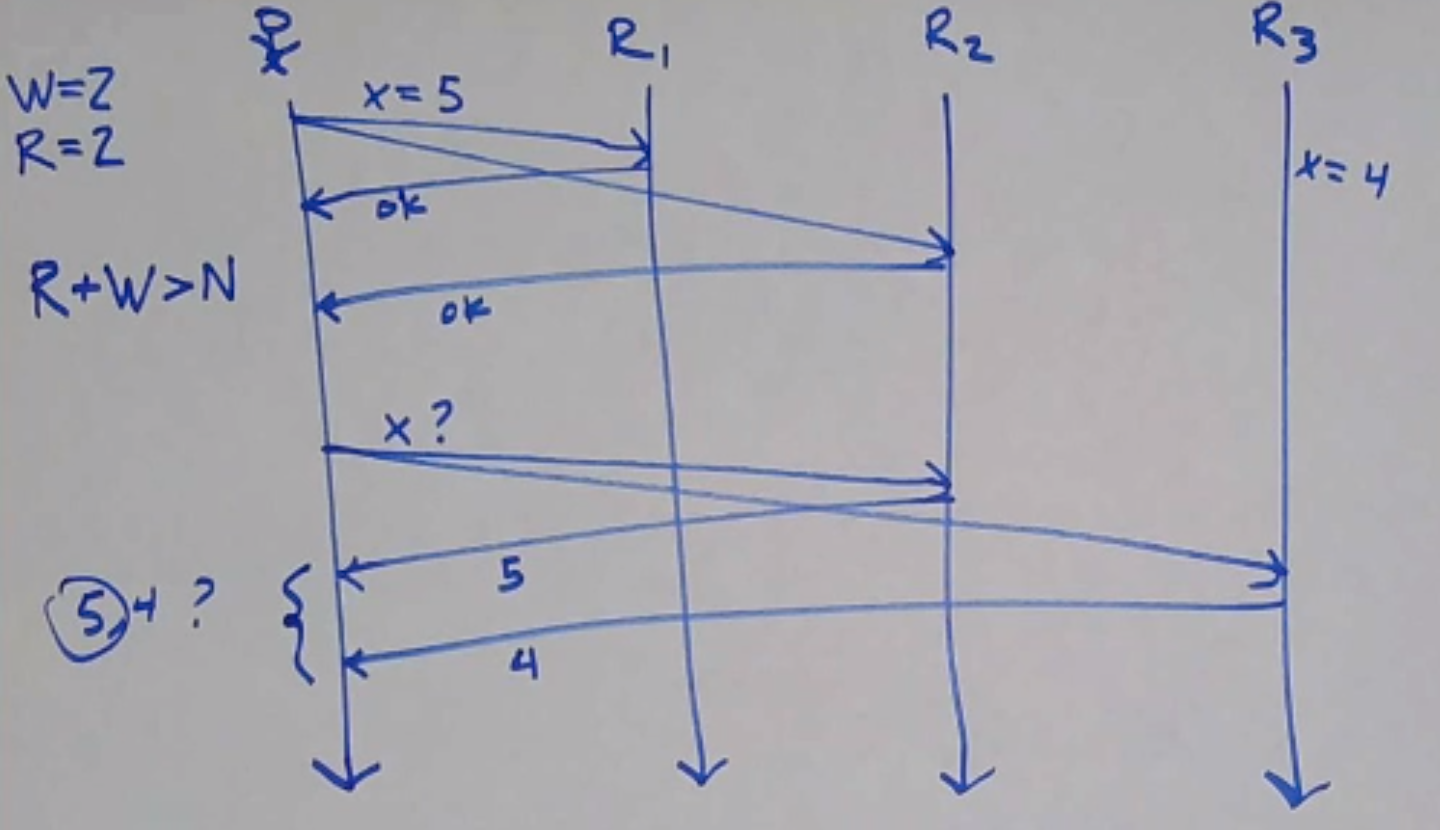 R₁ R₂ R₃
W=2
R=2
x=5
x=4
ok
R+W>N
ok
x?
5
5,4 ?
4